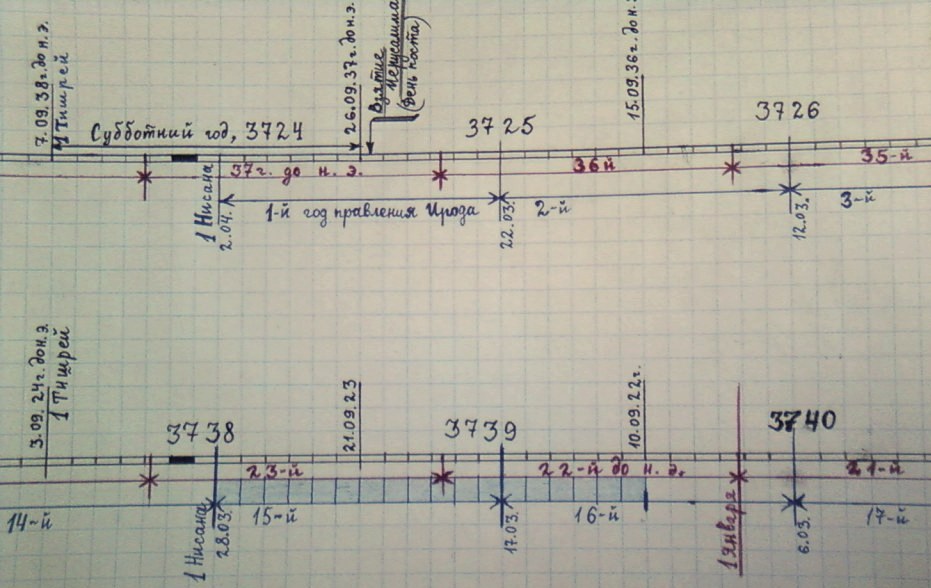 7.09.38г. до н. э.
1 Тишрей
Субботний год, 3724
26.09.37г. до н. э.
Взятие
Иерусалима
(День поста)
3725
15.09.36г. до н.
3726
37г. до н. э.
36й
35-й
1 Нисана
2.04.
1-й год правления Ирода
22.03.
2-й
12.03.
3-й
3.09. 24г. до н. э.
1 Тишрей
3738
21.09.23
3739
10.09.22г.
3740
23-й
22-й до н. э.
21-й
14-й
1 Нисана
28.03.
15-й
17.03.
16-й
1 января
6.03.
17-й